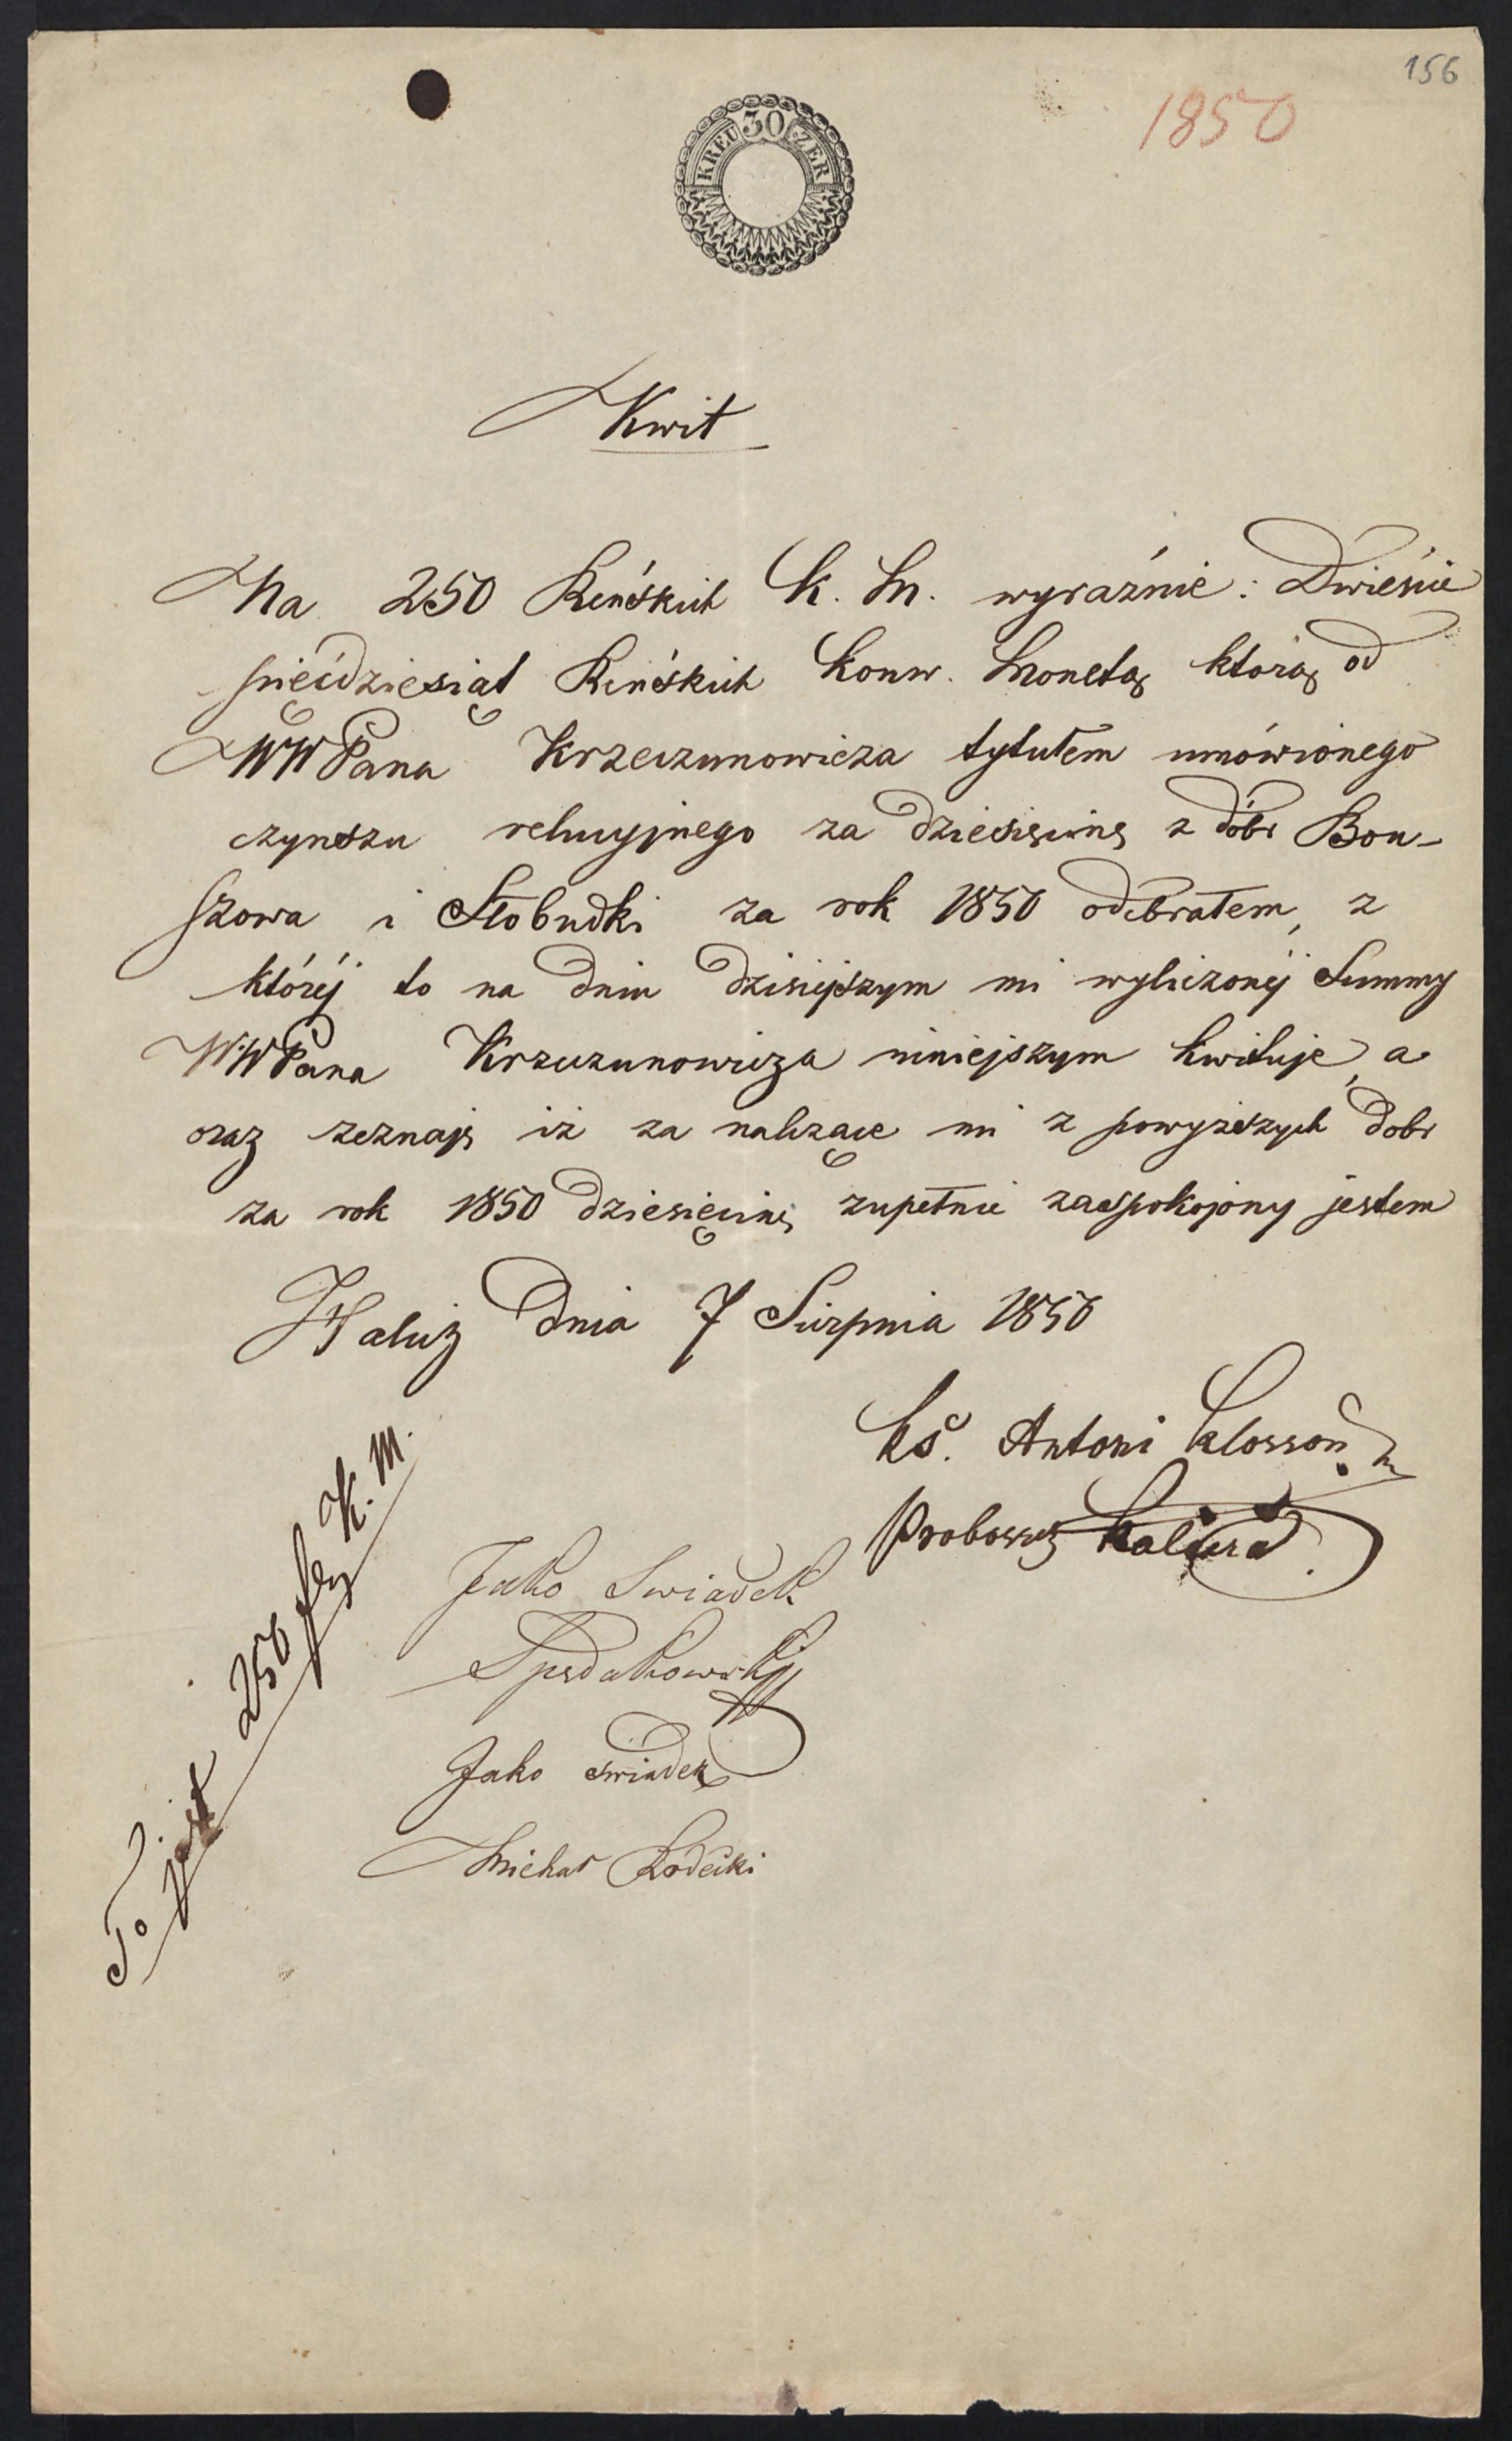 156
1850
30
KREUZER
Kwit
Na 250 Reńskich K. M. wyraźnie: Dwieście
pięćdziesiąt Reńskich Konw. Monetą którą od
WW Pana Krzeczunowicza tytułem umówionego
czynszu relucyjnego za dziesięcinę z dóbr Bou-
szowa i Słobudki za rok 1850 odebrałem, z
któréj to na dniu dzisiejszym mi wyliczonéj Summy
WW Pana Krzeczunowicza niniejszym kwituję, a
oraz zeznaję iż za należące mi z powyższych dobr
za rok 1850 dziesięcinę zupełnie zaspokojony jestem
Halicz dnia 7 Sierpnia 1850
Ks. Antoni
Proboszcz
To jest 250 K. M.
Jako Swiadek
Jako swiadek
Michał Rodecki